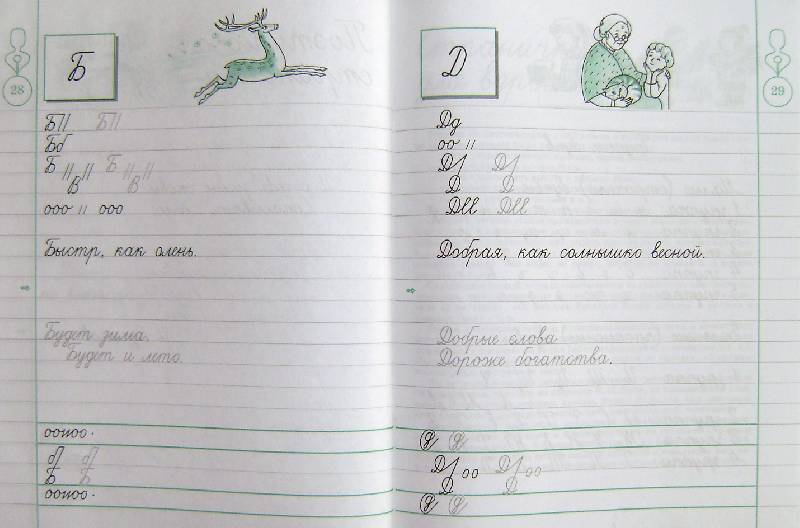 28
Б
БП БП
Бб
Б Б
В В
ооо ооо
Быстр, как олень.
Будет зима.
Будет и лето.
ооиоо.
Б Б
ооиоо.
29
Д
Дд
оо
Д Д
Д Д
Двв Двв
Добрая, как солнышко весной.
Добрые слова
Дороже богатства.
Д оо Д оо
Д Д